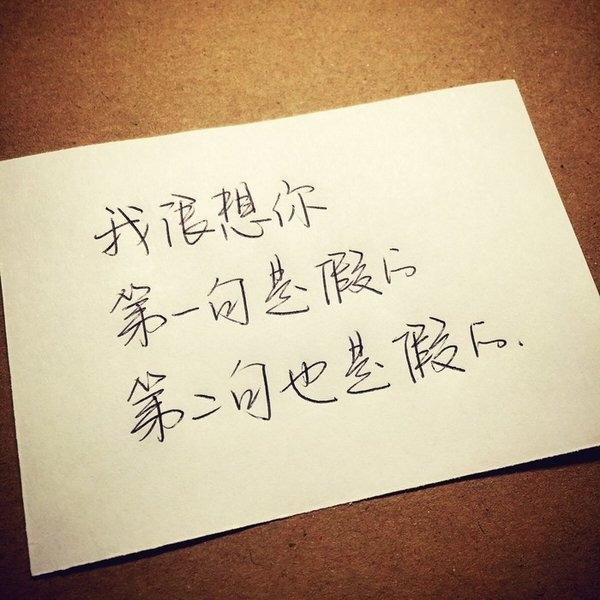 我很想你
第一句是假的
第二句也是假的.